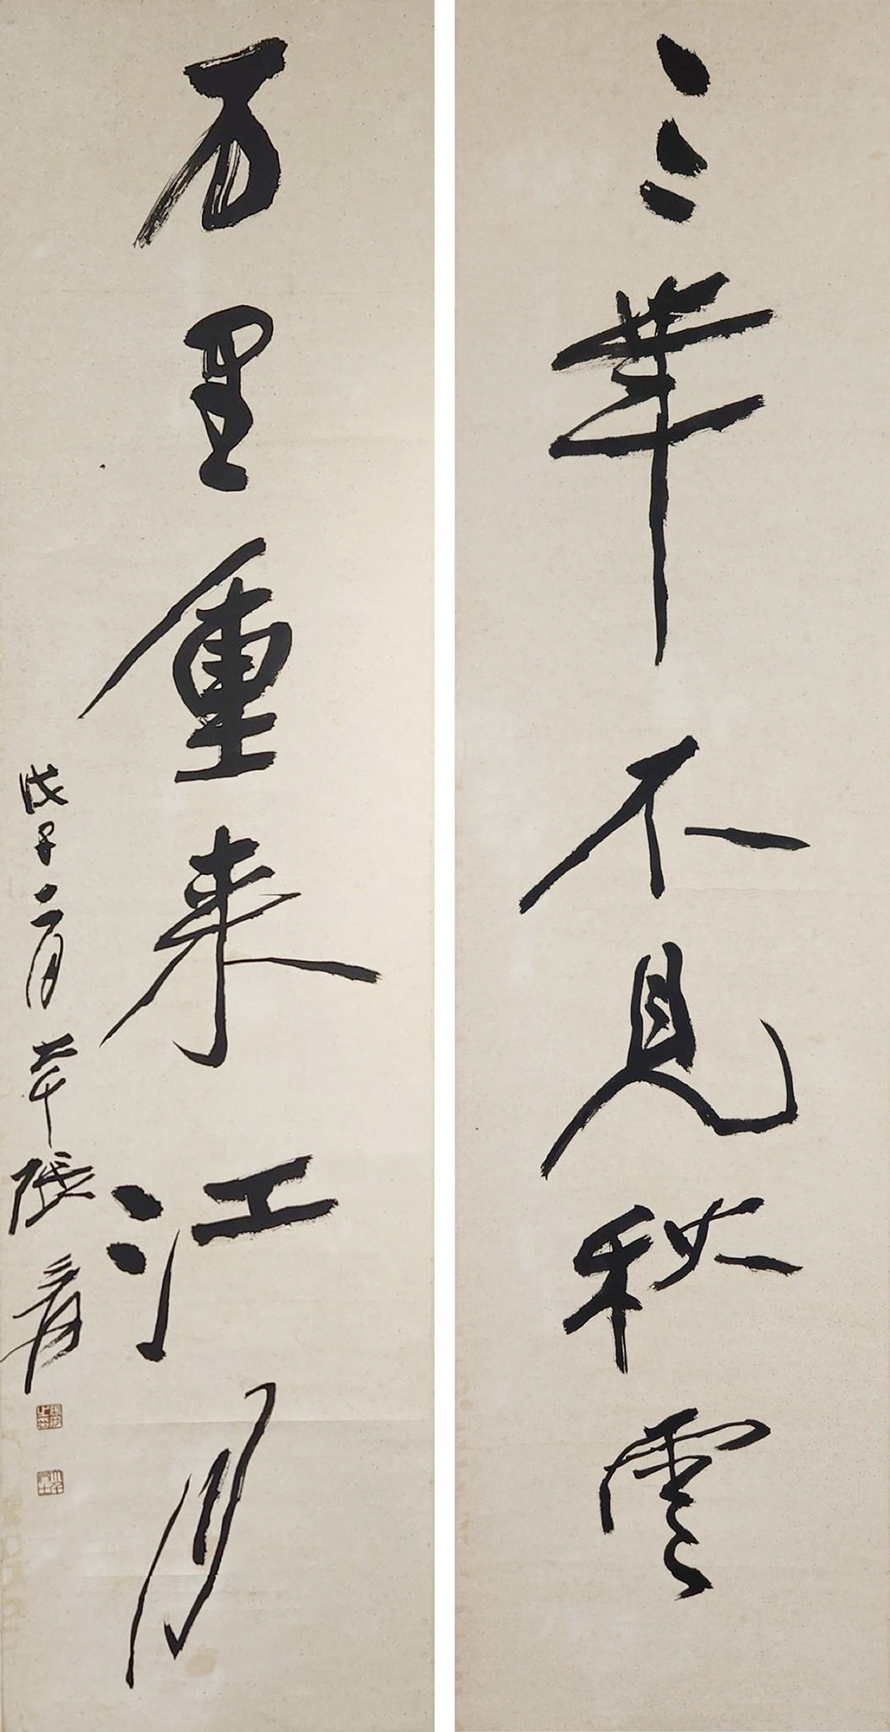 三華不見秋雲
万里重来江月
戊子二月大千張爰